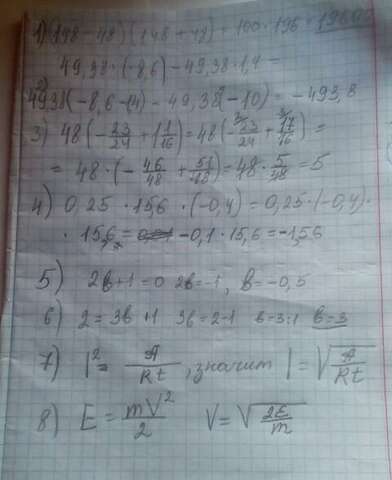 1) (148 - 48) (148 + 48) = 100 · 196 = 19600
49,38 · (-8,6) - 49,38 · 1,4 =
2) 49,38(-8,6 - 1,4) = 49,38(-10) = -493,8
3) 48(-23/24 + 1 1/16) = 48(-23/24 + 17/16) =
= 48 · (-46/48 + 51/48) = 48 · 5/48 = 5
4) 0,25 · 15,6 · (-0,4) = 0,25 · (-0,4) ·
· 15,6 = -0,1 · 15,6 = -1,56
5) 2b+1=0 2b=-1, b=-0,5
6) 2=3b+1 3b=2-1 b=3:1 b=3
7) I² = A/Rt, значит I = √(A/Rt)
8) E = mV²/2 V = √(2E/m)